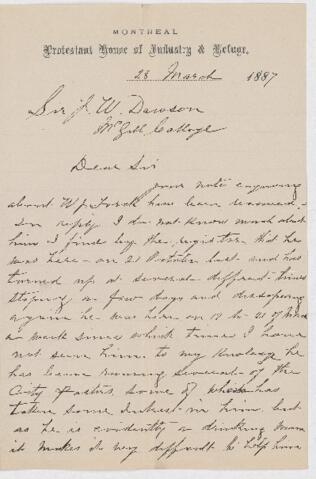 MONTREAL
Protestant House of Industry & Refuge.
28 March 1887
Sir J. W. Dawson
McGill College
Dear Sir
your note enquiring
about W J have been received
In reply I do not know much about
him I find by the register that he
was here on 21 October last and has
turned up at several different times
stoping a few days and
again he was here on 18 to 21 of
a week since which time I have
not seen him. to my knolege he
has been several of the
City Pastors, some of whom has
taken some intrest in him, but
as he is evidently a drinking man
it makes it very difficult to help him